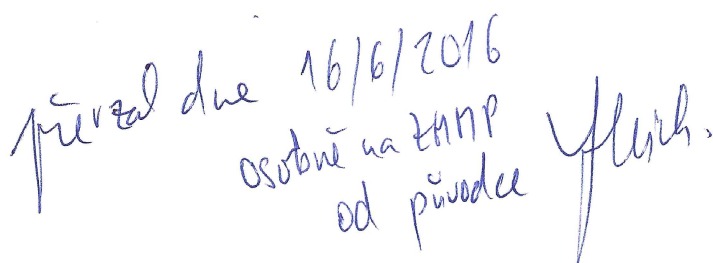 převzal dne 16/6/2016
osobně na ZMMP
od původce